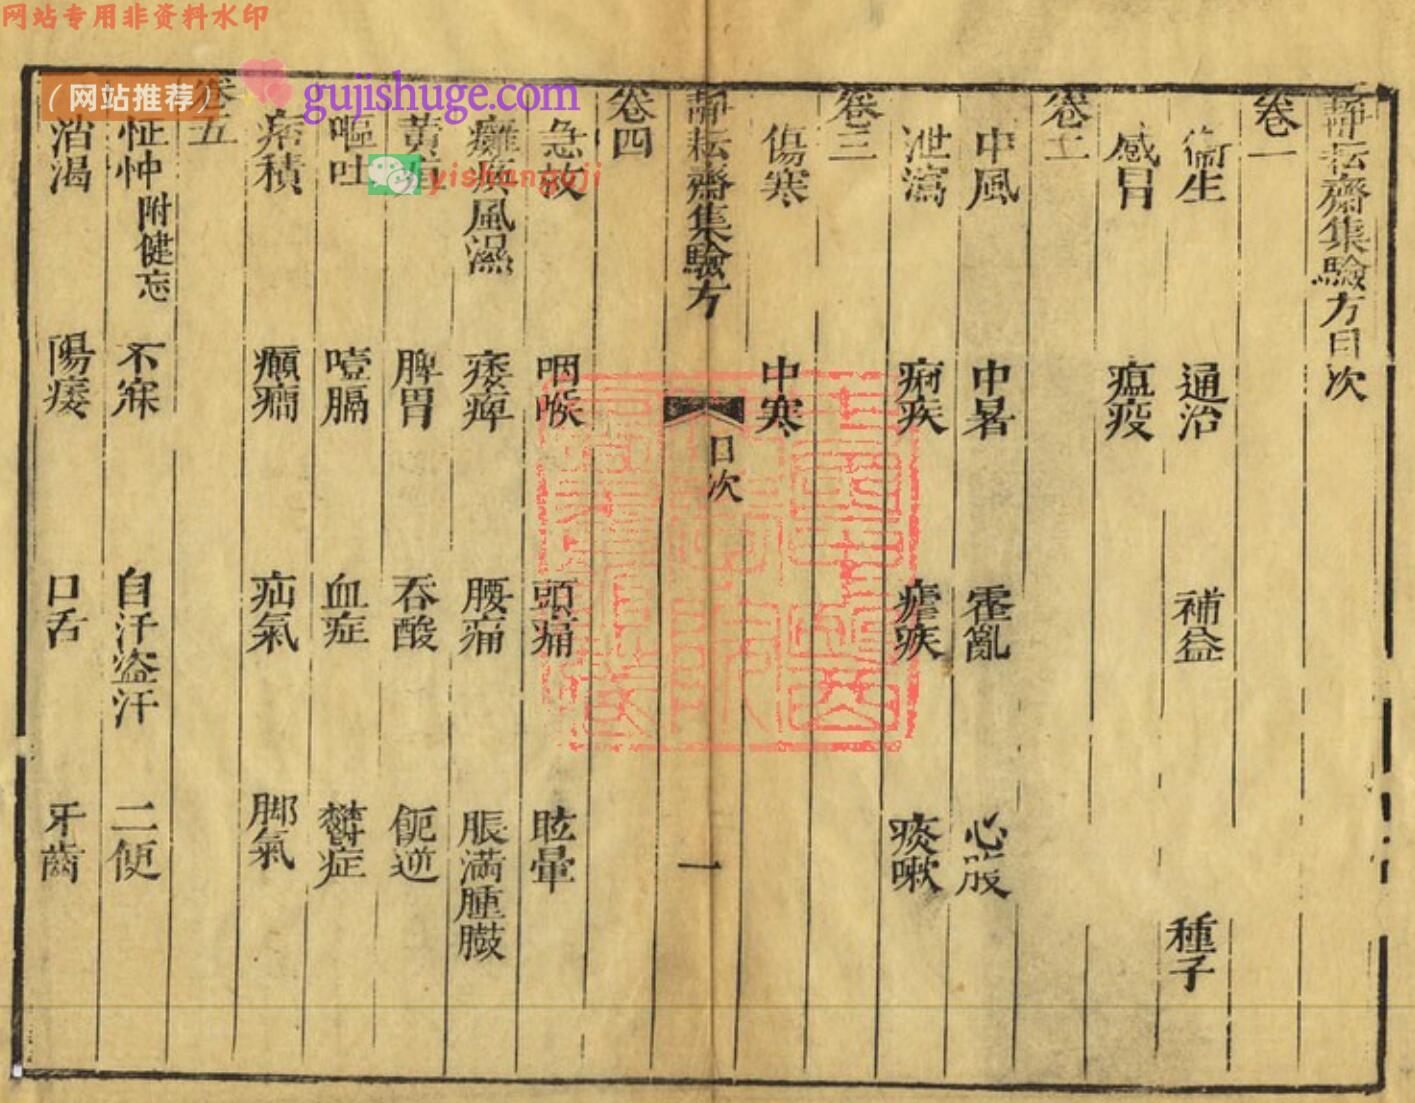 网站专用非资料水印
（网站推荐）
gujishuge.com
yishanguji
靜耘齋集驗方目次
卷一
衞生 通治 補益 種子
感冒 瘟疫
卷二
中風 中暑 霍亂 心腹
泄瀉 痢疾 瘧疾 痰嗽
卷三
傷寒 中寒
靜耘齋集驗方 目次 一
卷四
急救 咽喉 頭痛 眩暈
癱瘓風濕 痿痺 腰痛 脹滿腫臌
黃疸 脾胃 吞酸 呃逆
嘔吐 噎膈 血症 鬱症
痞積 癲癇 疝氣 脚氣
卷五
怔忡附健忘 不寐 自汗盜汗 二便
消渴 陽痿 口舌 牙齒